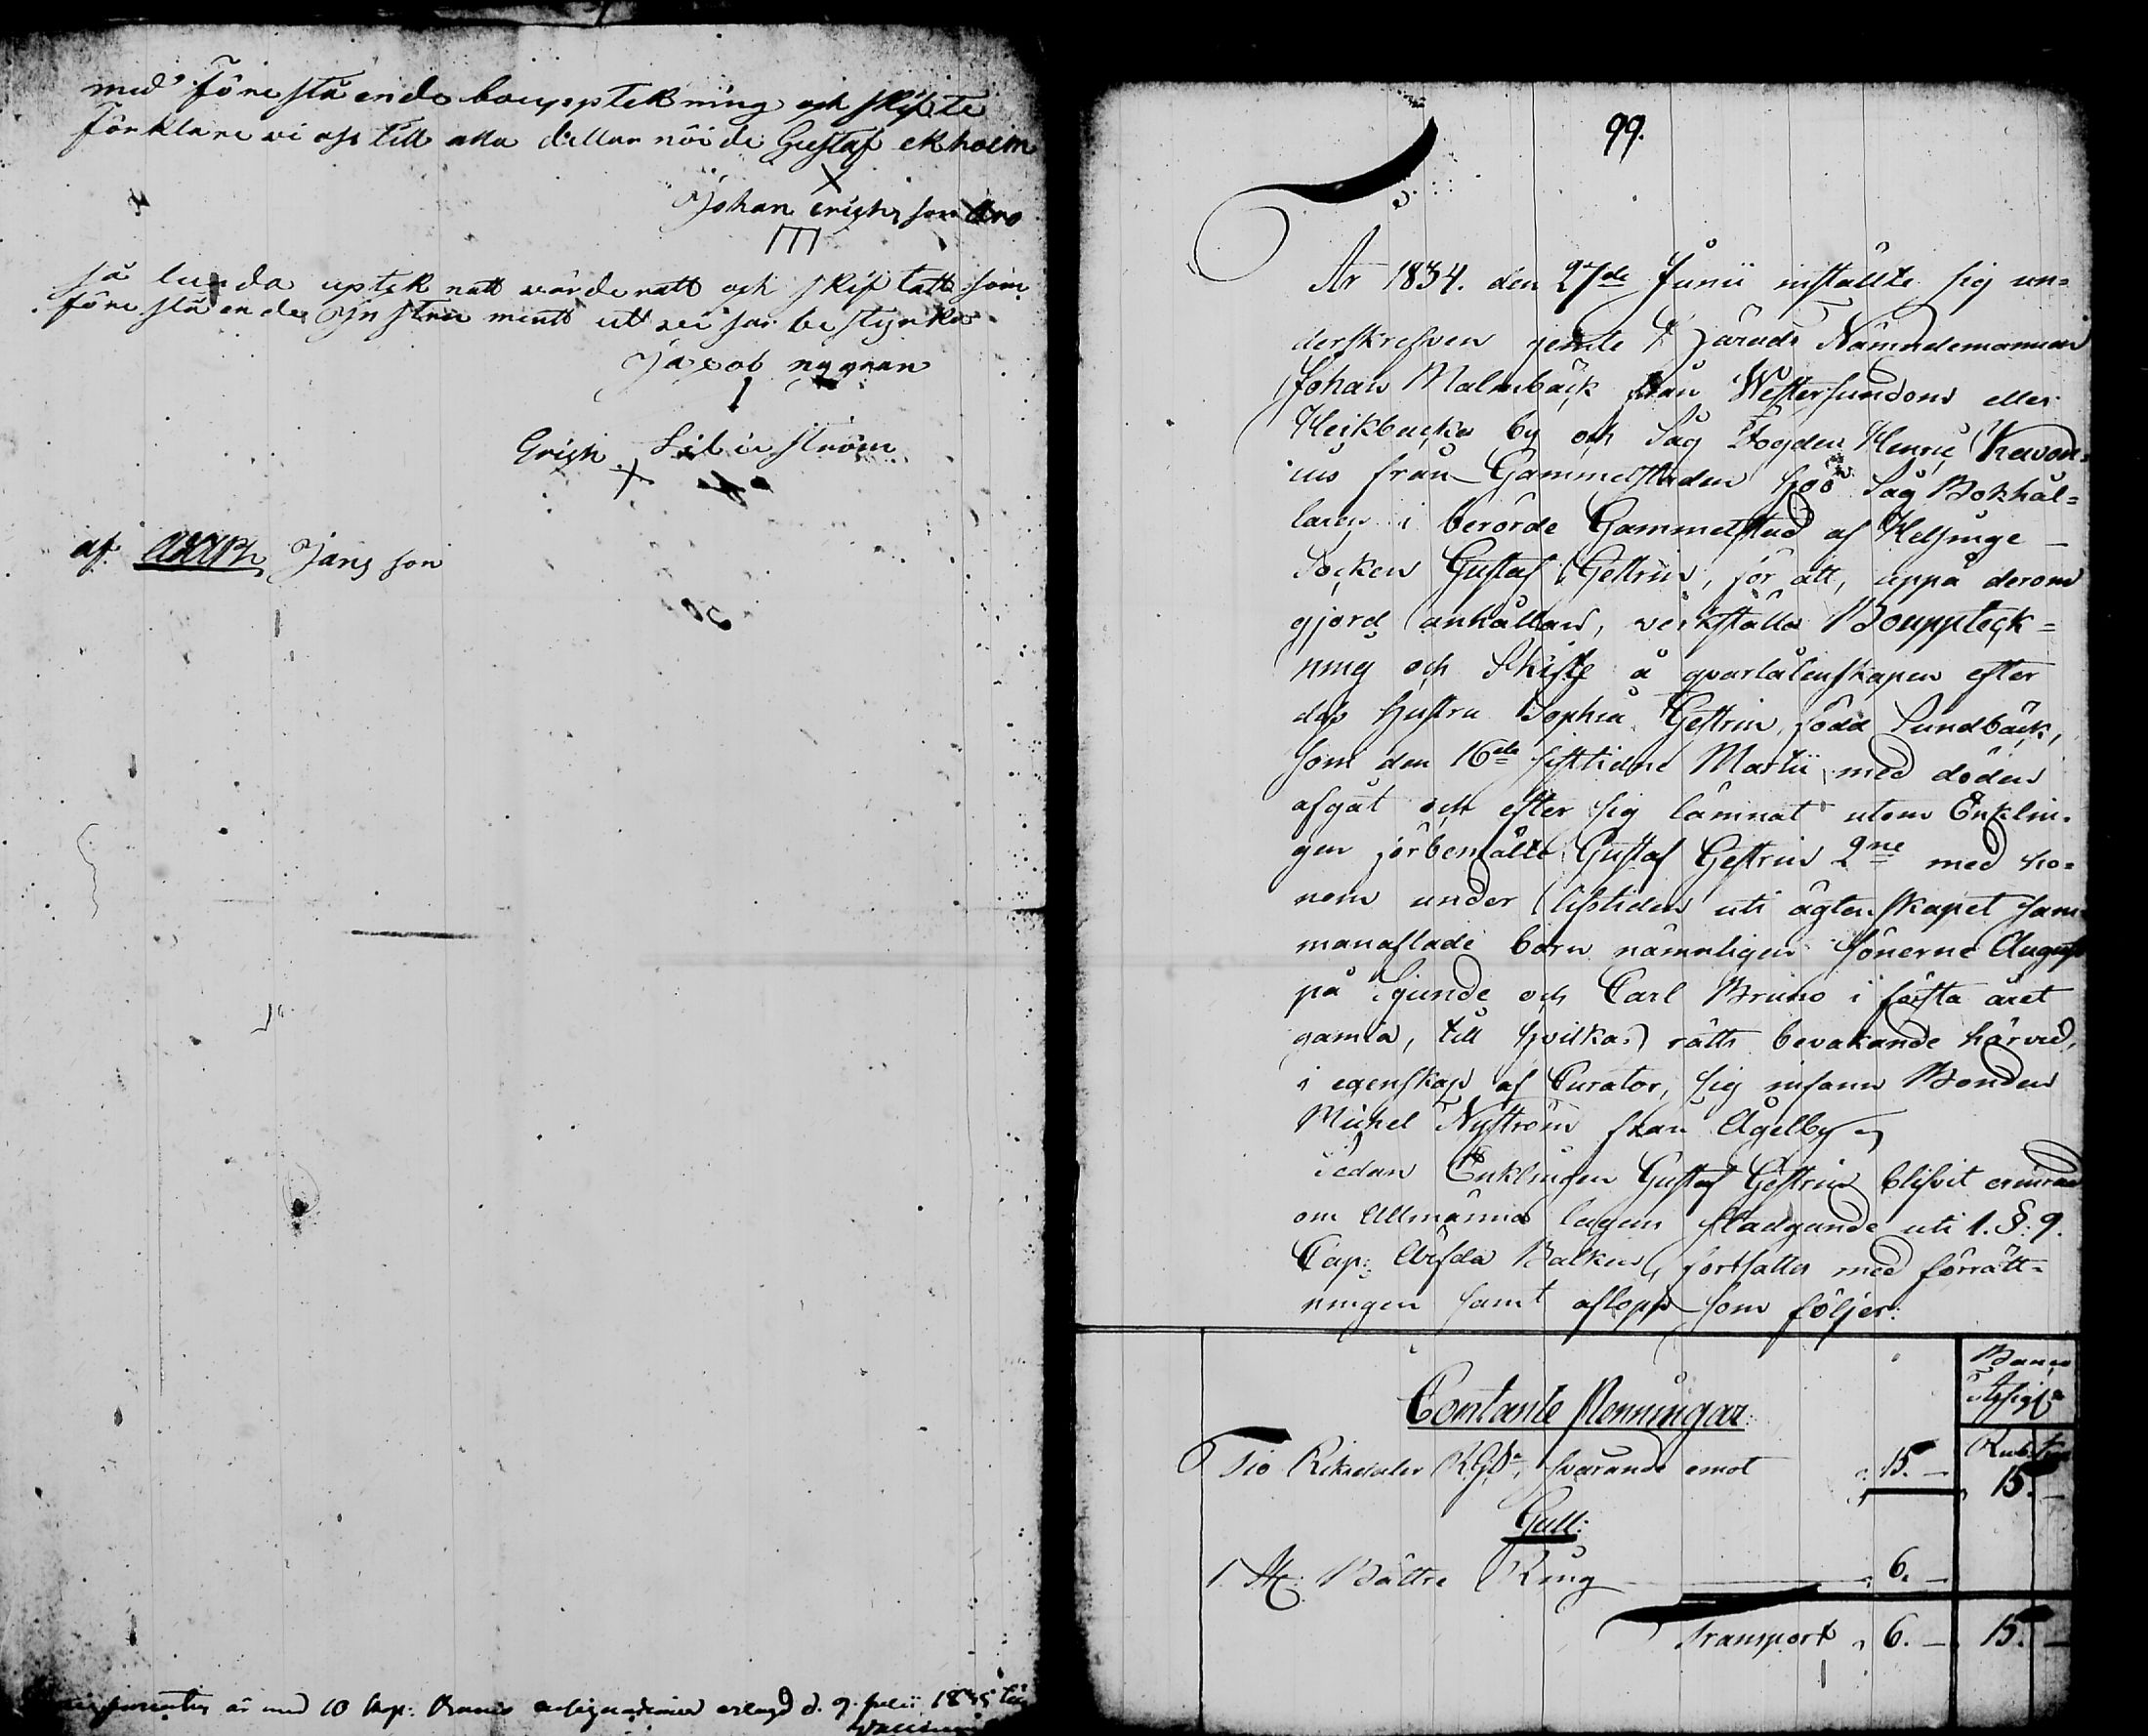 med förestående boupptekning och skifte
förklare vi oss till alla dellar nöide Gustaf ekholm
Johan erichsson
så lunda uptek natt värde ratt och skif tatt som
före stå ende In stru mentt ut vei sar be styrker
Jacob nygran
Erich Silierström
af Jansson
är med 10 kop: Banco assignationer erlagd d. 9. Julii 1835
99.
År 1834. den 27de Junii inställte sig un-
derskrefven jemte Härads Nämndemannen
Johan Malmbäck från Westersundoms eller
by och Såg Fogden Henric
ius från Gammelstaden hos Såg Bokhål-
laren i berörde Gammelstad af Helsinge
Socken Gustaf Gestrin, för att, uppå derom
gjord anhållan, verkställa Bouppteck-
ning och Skifte å qvarlåtenskapen efter
dess Hustru Sophia Gestrin, född Sundbäck,
som den 16de sistledne Martii med döden
afgåt och efter sig lämnat utom Enklin-
gen förbemälte Gustaf Gestrin 2ne med ho-
nom under lifstiden uti ägtenskapet sam
manaflade barn nämnligen Sönerne August
på och Carl Bruno i första året
gamla, till hvilkas rätts bevakande härvid,
i egenskap af Curator, sig infann Bonden
Michel Nyström från Ågelby
Sedan Enklingen Gustaf Gestrin blifvit erinrad
om Allmänna lagens stadgande uti 1. §. 9.
Cap: Ärfda Balken, fortsattes med förrätt-
ningen samt aflopp som följer:
Banco
Contante Penningar
Tio Riksdaler RGS, svarande emot 15. — 15. —
Gull:
1 St: Bättre Ring 6. —
Transport 6. — 15. —